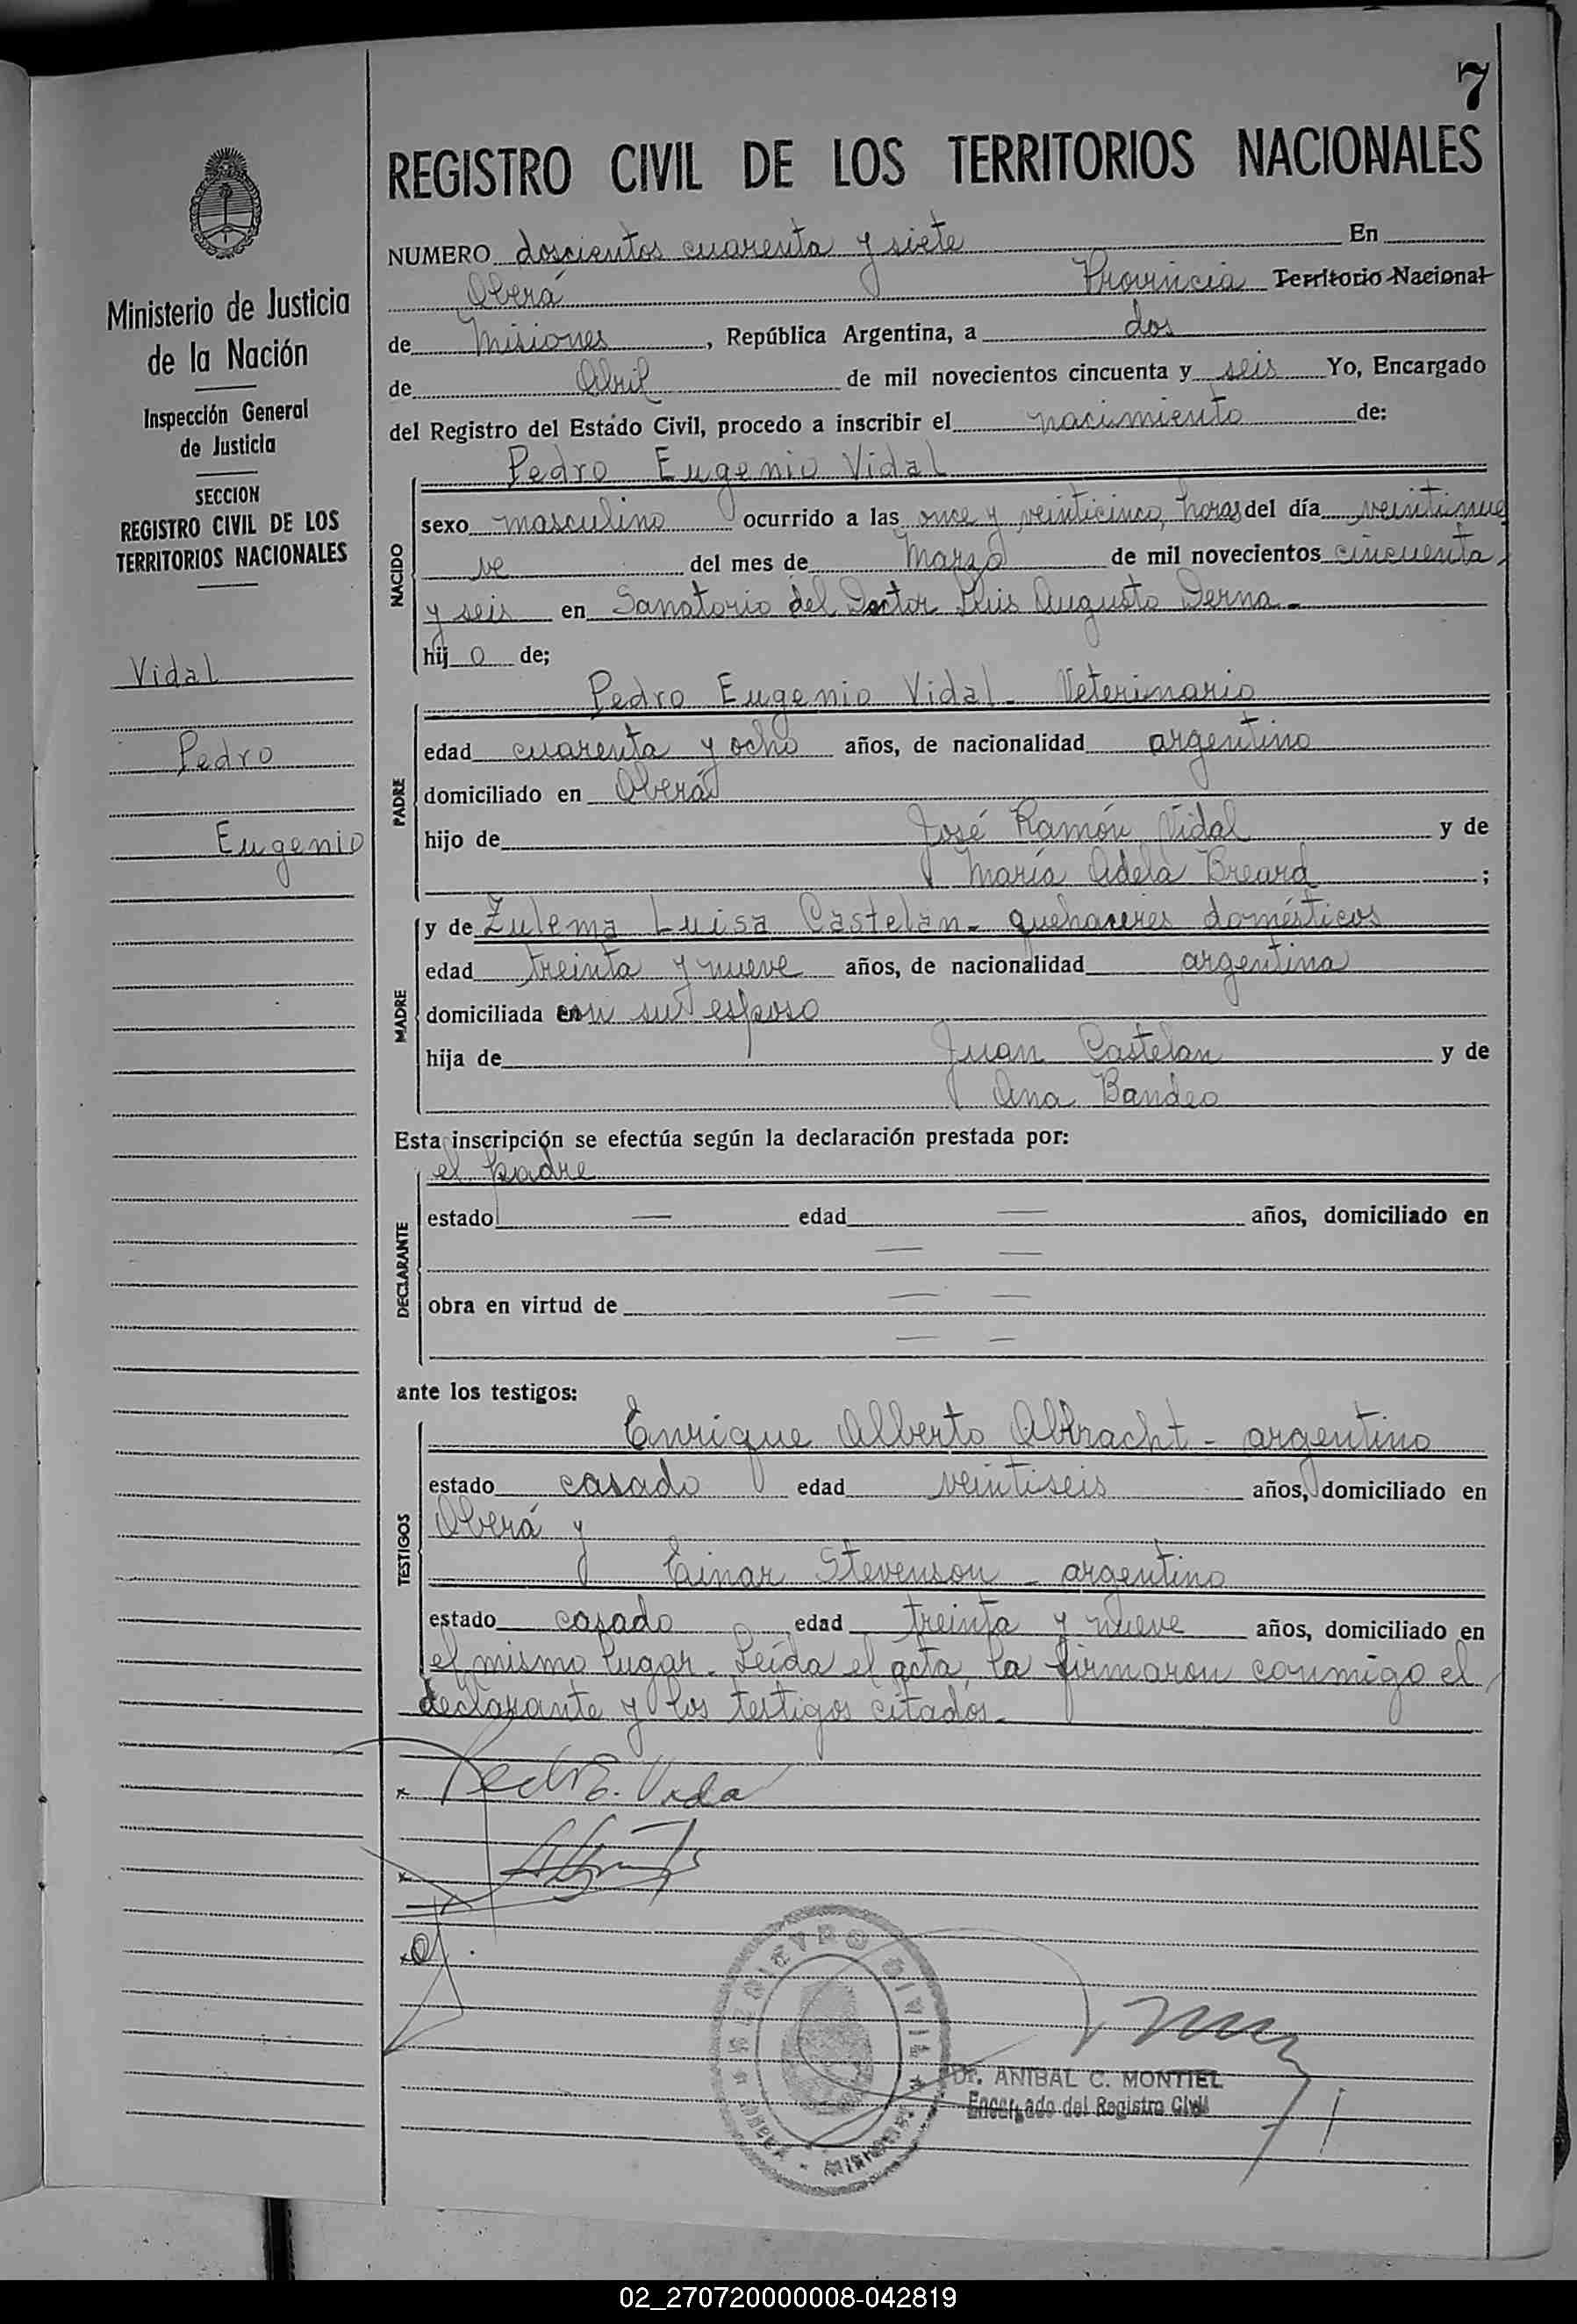 7
REGISTRO CIVIL DE LOS TERRITORIOS NACIONALES
Ministerio de Justicia
de la Nación
Inspección General
de Justicia
SECCION
REGISTRO CIVIL DE LOS
TERRITORIOS NACIONALES
Vidal
Pedro
Eugenio
NUMERO doscientos cuarenta y siete En
Oberá Provincia Territorio Nacional
de Misiones, República Argentina, a dos
de Abril de mil novecientos cincuenta y seis Yo, Encargado
del Registro del Estado Civil, procedo a inscribir el nacimiento de:
Pedro Eugenio Vidal
NACIDO
sexo masculino ocurrido a las once y veinticinco horas del día veintinue
ve del mes de Marzo de mil novecientos cincuenta
y seis en Sanatorio del Doctor Luis Augusto Derna.-
hijo de;
PADRE
Pedro Eugenio Vidal - Veterinario
edad cuarenta y ocho años, de nacionalidad argentino
domiciliado en Oberá
hijo de José Ramón Vidal y de
María Adela Breard ;
MADRE
y de Zulema Luisa Castelan - quehaceres domésticos
edad treinta y nueve años, de nacionalidad argentina
domiciliada con su esposo
hija de Juan Castelan y de
Ana Bandeo
Esta inscripción se efectúa según la declaración prestada por:
el padre
DECLARANTE
estado — edad — años, domiciliado en
— —
obra en virtud de — —
— —
ante los testigos:
TESTIGOS
Enrique Alberto Albracht - argentino
estado casado edad veintiseis años, domiciliado en
Oberá y
Einar Stevenson - argentino
estado casado edad treinta y nueve años, domiciliado en
el mismo lugar. Leída el acta, la firmaron conmigo el
declarante y los testigos citados.-
x Pedro E. Vidal
x
x
REGISTRO CIVIL
OBERA - MISIONES
Dr. ANIBAL C. MONTIEL
Encargado del Registro Civil
02_270720000008-042819